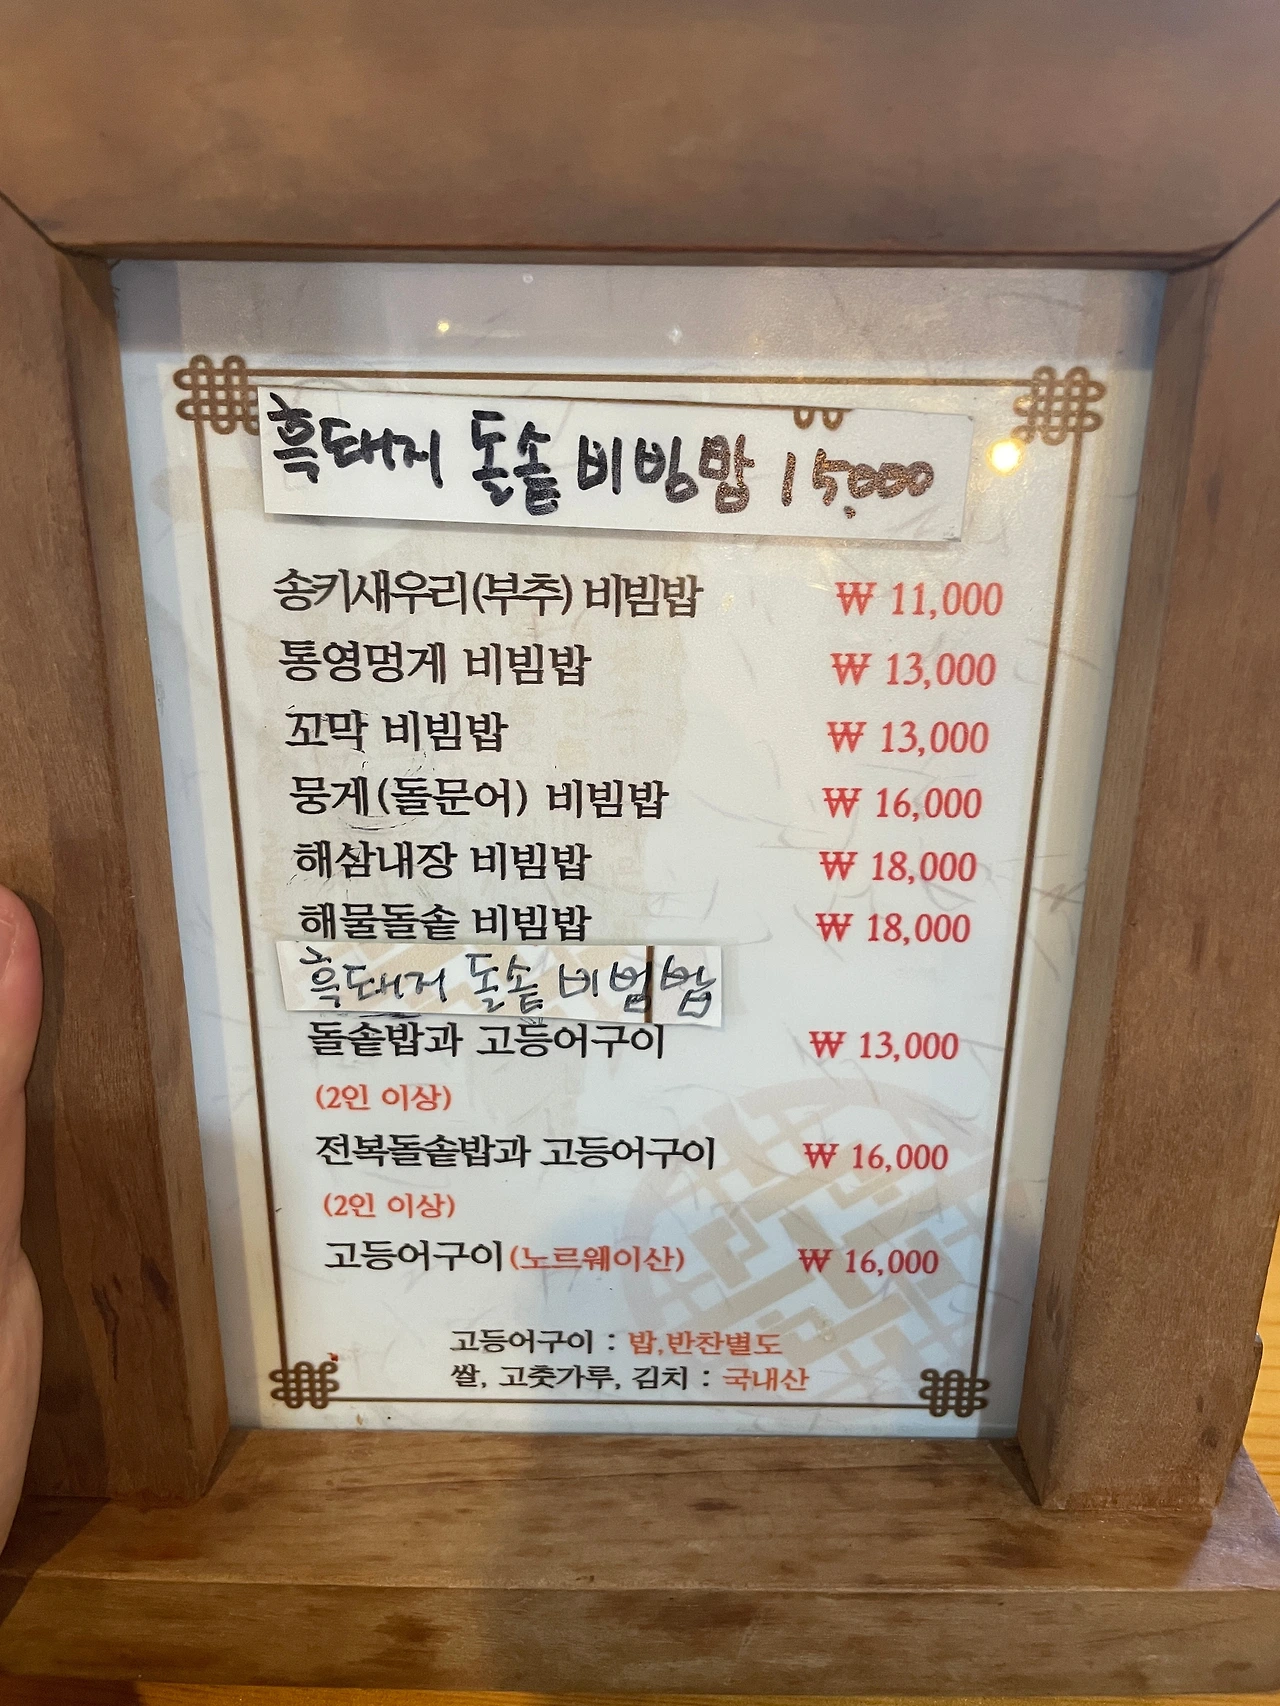 흑돼지 돌솥 비빔밥 15,000
송키새우리(부추) 비빔밥 ₩ 11,000
통영멍게 비빔밥 ₩ 13,000
꼬막 비빔밥 ₩ 13,000
뭉게(돌문어) 비빔밥 ₩ 16,000
해삼내장 비빔밥 ₩ 18,000
해물돌솥 비빔밥 ₩ 18,000
흑돼지 돌솥 비빔밥
돌솥밥과 고등어구이 ₩ 13,000
(2인 이상)
전복돌솥밥과 고등어구이 ₩ 16,000
(2인 이상)
고등어구이(노르웨이산) ₩ 16,000
고등어구이 : 밥,반찬별도
쌀, 고춧가루, 김치 : 국내산